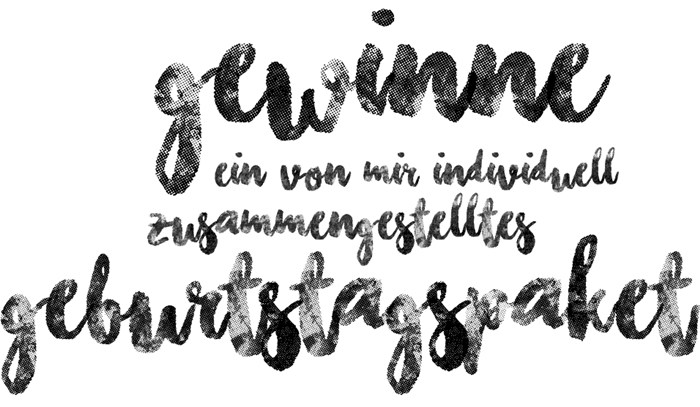 gewinne
ein von mir individuell
zusammengestelltes
geburtstagspaket